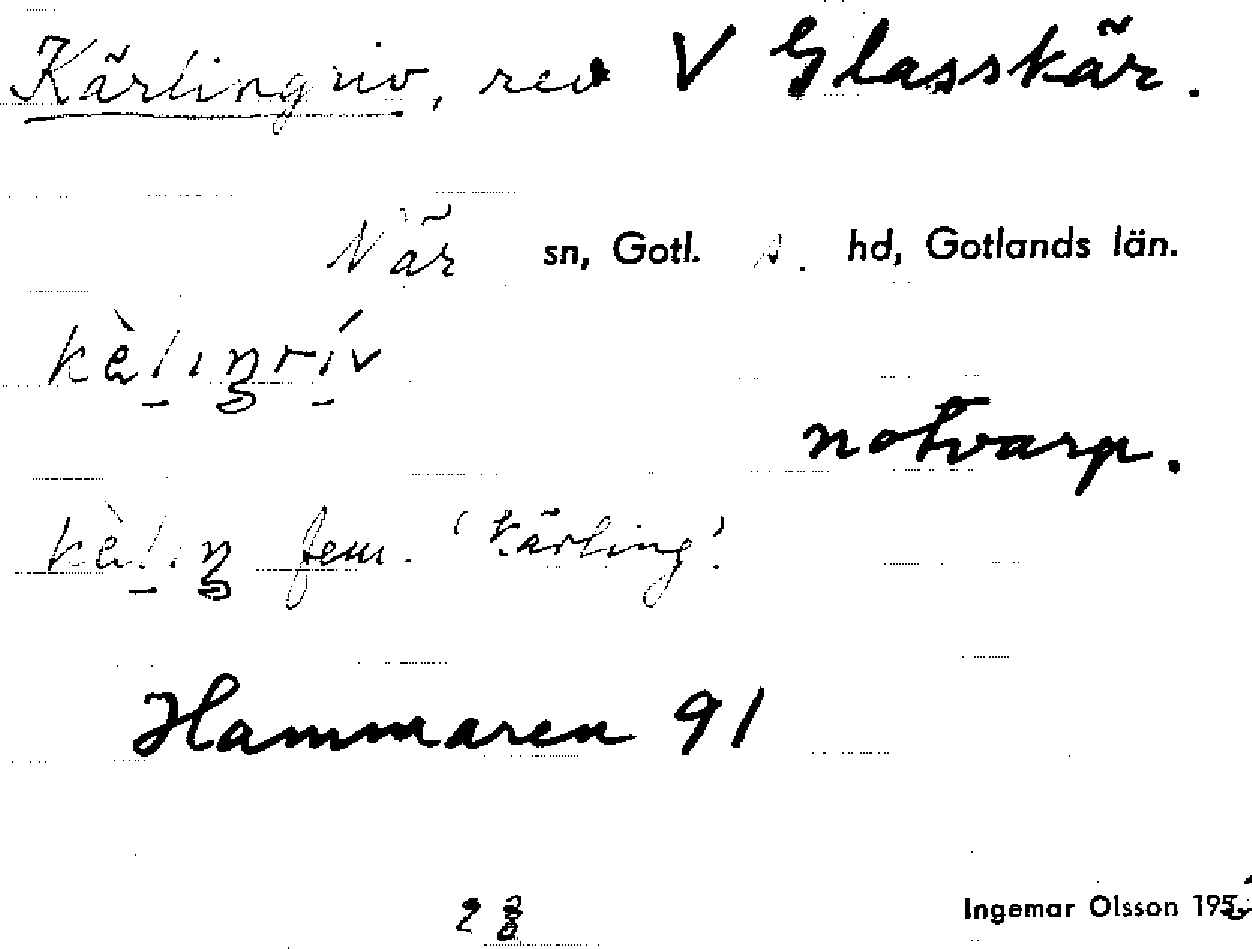 Kärlingriv, rev V Glasskär.
När sn, Gotl. s. hd, Gotlands län.
kèlıŋrív
notvarp.
kèlıŋ fem. 'kärling'.
Hammaren 91
Ingemar Olsson